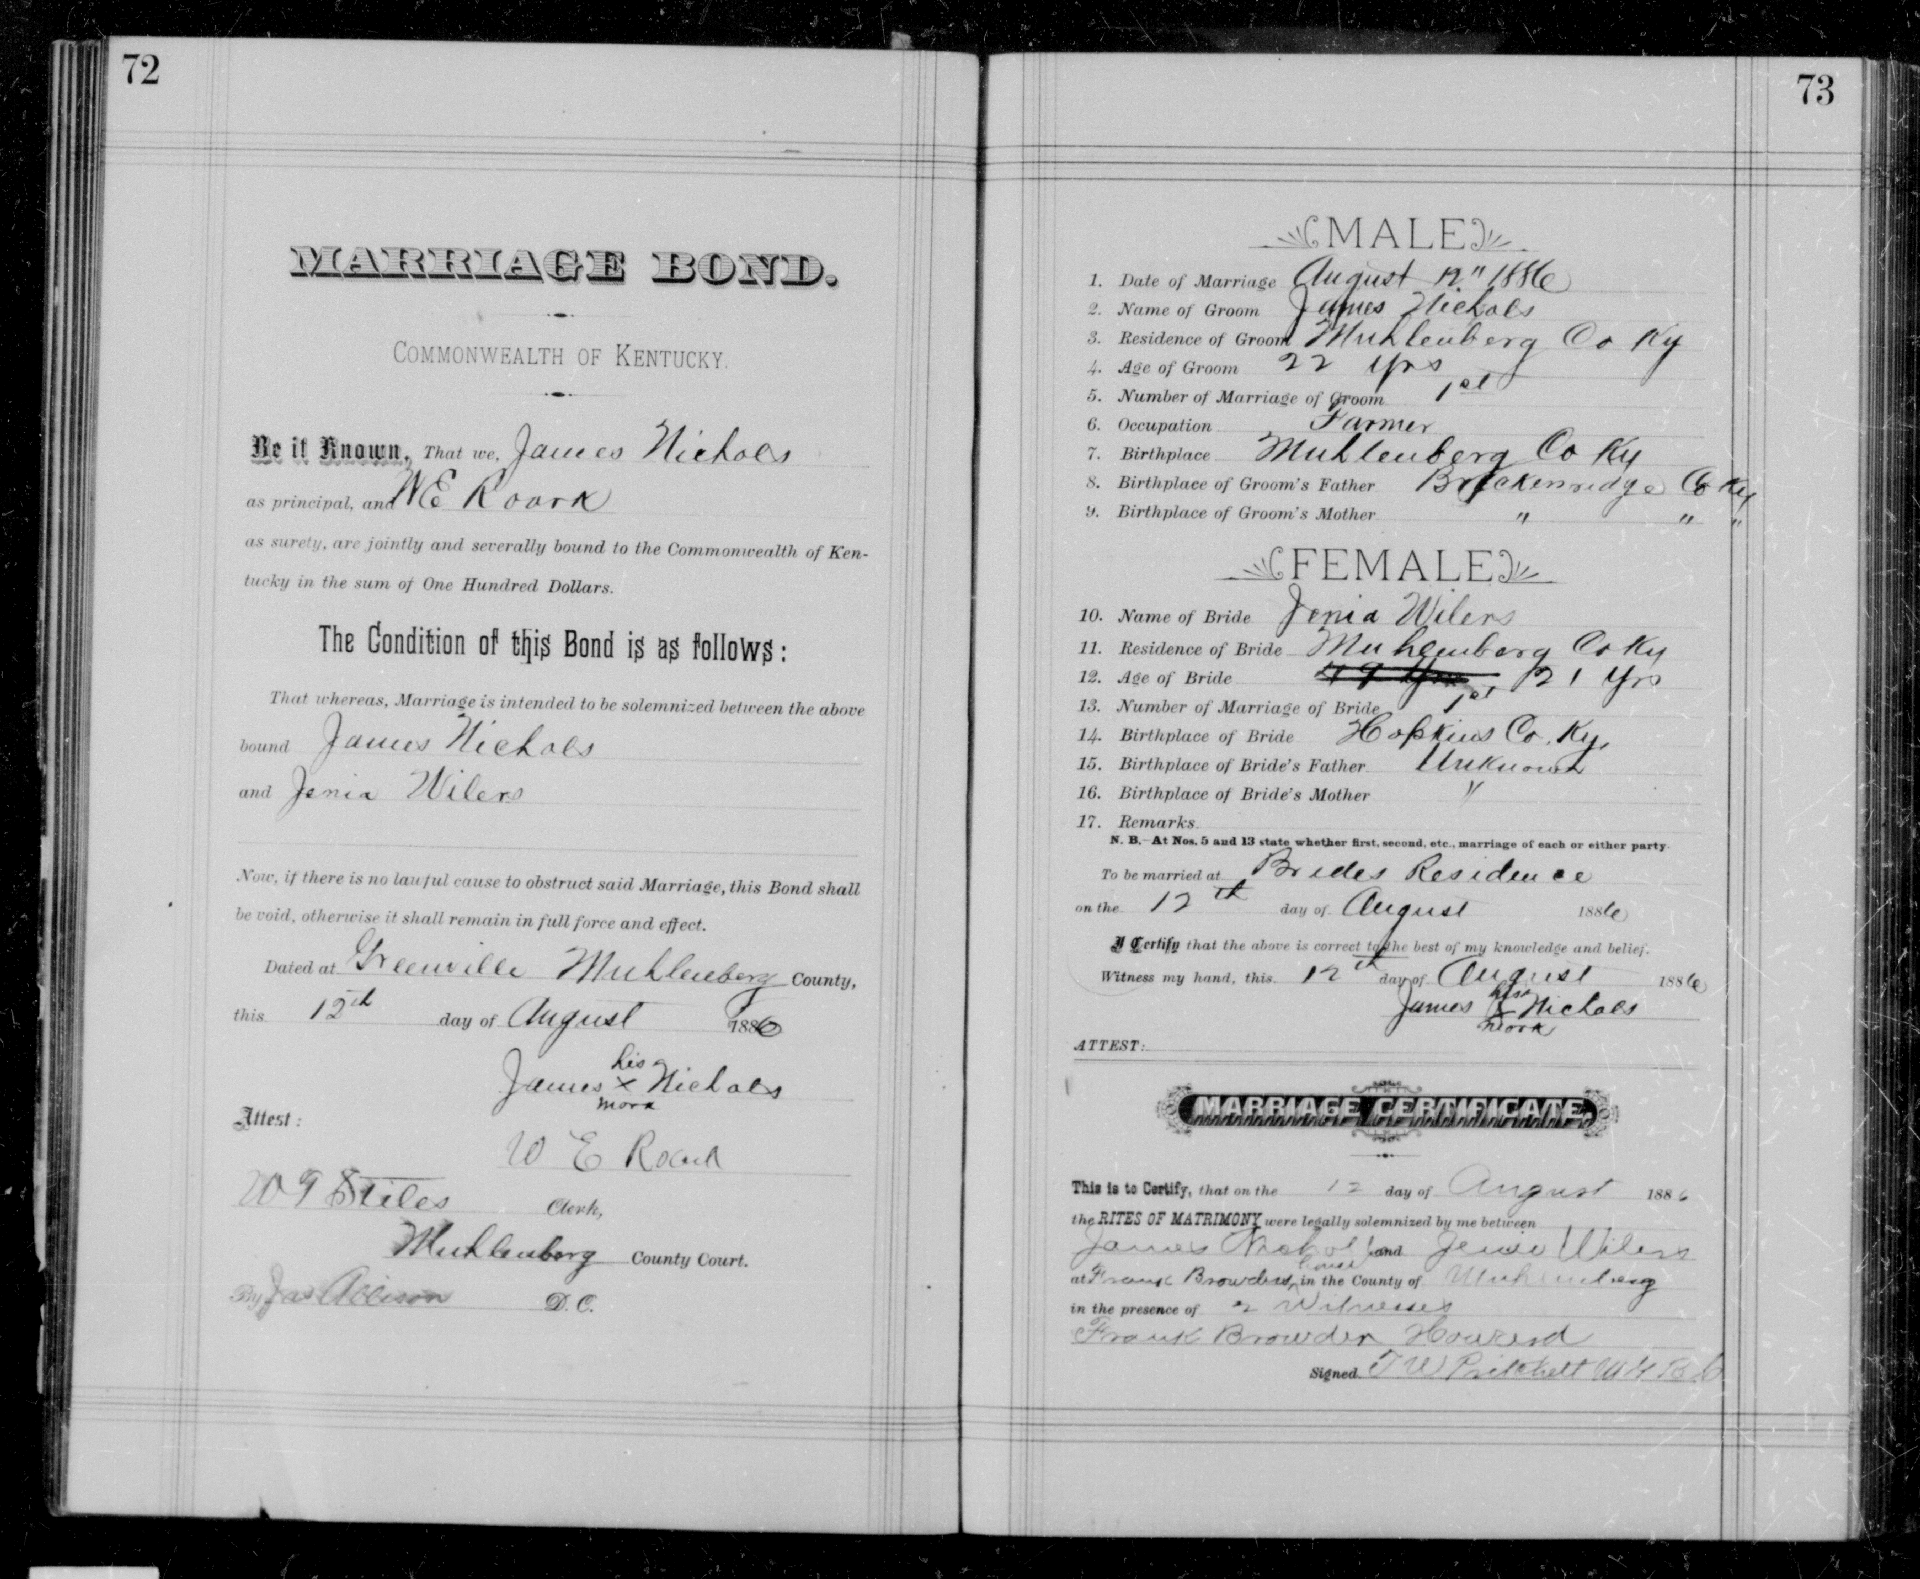 72
MARRIAGE BOND.
COMMONWEALTH OF KENTUCKY.
Be it Known, That we, James Nichols
as principal, and W E Roark
as surety, are jointly and severally bound to the Commonwealth of Ken-
tucky in the sum of One Hundred Dollars.
The Condition of this Bond is as follows:
That whereas, Marriage is intended to be solemnized between the above
bound James Nichols
and Jenia Wilers
Now, if there is no lawful cause to obstruct said Marriage, this Bond shall
be void, otherwise it shall remain in full force and effect.
Dated at Greenville Muhlenberg County,
this 12th day of August 1886
his
James x Nichols
mark
Attest:
W E Roark
W T Stiles Clerk,
Muhlenberg County Court.
By Jas Allison D. C.
73
MALE
1. Date of Marriage August 12" 1886
2. Name of Groom James Nichols
3. Residence of Groom Muhlenberg Co Ky
4. Age of Groom 22 yrs
5. Number of Marriage of Groom 1st
6. Occupation Farmer
7. Birthplace Muhlenberg Co Ky
8. Birthplace of Groom's Father Breckenridge Co Ky
9. Birthplace of Groom's Mother " " "
FEMALE
10. Name of Bride Jenia Wilers
11. Residence of Bride Muhlenberg Co Ky
12. Age of Bride 21 Yrs
13. Number of Marriage of Bride 1st
14. Birthplace of Bride Hopkins Co. Ky.
15. Birthplace of Bride's Father Unknown
16. Birthplace of Bride's Mother "
17. Remarks
N. B.—At Nos. 5 and 13 state whether first, second, etc., marriage of each or either party.
To be married at Brides Residence
on the 12th day of August 1886
I Certify that the above is correct to the best of my knowledge and belief.
Witness my hand, this 12th day of August 1886
his
James x Nichols
mark
ATTEST:
MARRIAGE CERTIFICATE.
This is to Certify, that on the 12 day of August 1886
the RITES OF MATRIMONY were legally solemnized by me between
James Nichols and Jenie Wilers
house
at Frank Browders in the County of Muhlenberg
in the presence of 2 Witnesses
Frank Browder Howard
Signed T W Pritchett